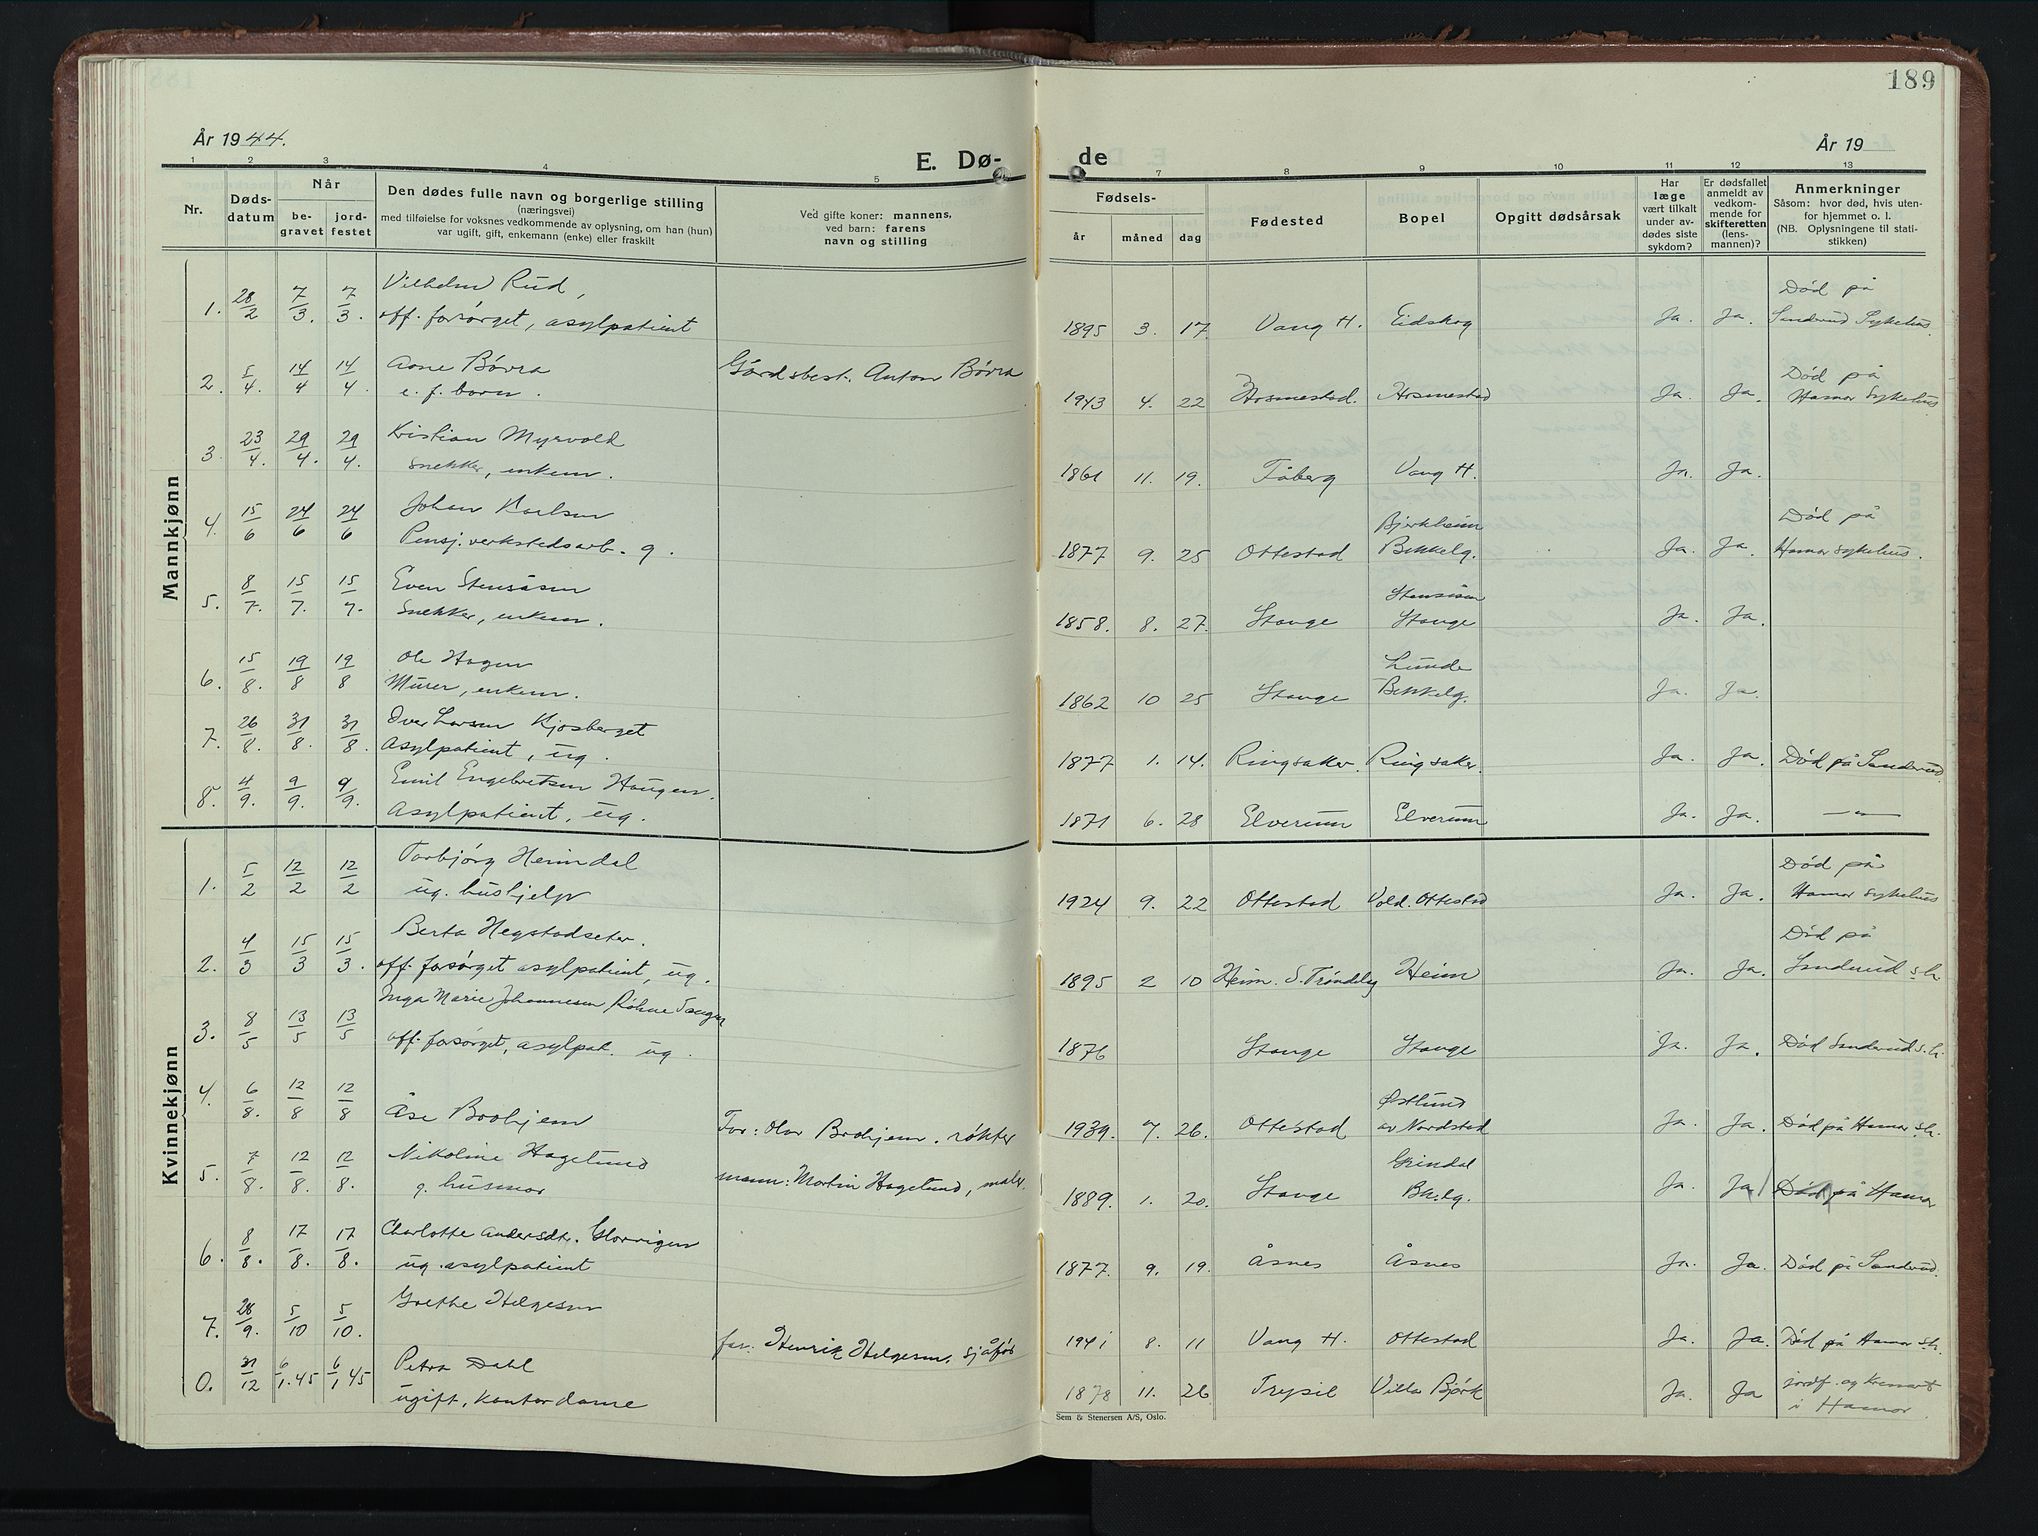 189
År 1944.
År 19
E. Dø-
de
1 2 3 4 5 7 8 9 10 11 12 13
Nr.
Døds-
datum
Når
be-
gravet
jord-
festet
Den dødes fulle navn og borgerlige stilling
(næringsvei)
med tilføielse for voksnes vedkommende av oplysning, om han (hun)
var ugift, gift, enkemann (enke) eller fraskilt
Ved gifte koner: mannens,
ved barn: farens
navn og stilling
Fødsels-
år måned dag
Fødested
Bopel
Opgitt dødsårsak
Har
læge
vært tilkalt
under av-
dødes siste
sykdom?
Er dødsfallet
anmeldt av
vedkom-
mende for
skifteretten
(lens-
mannen)?
Anmerkninger
Såsom: hvor død, hvis uten-
for hjemmet o. l.
(NB. Oplysningene til stati-
stikken)
Mannkjønn
Vilhelm Rud,
Død på
1. 28/2 7/3. 7/3. off. forsørget, asylpatient 1895 3. 17. Vang H. Eidskog Ja. Ja. Sanderud Sykehus.
Arne Børra Gårdsbest. Anton Børra
Død på
2. 5/4. 14/4 14/4. e. f. barn. 1943 4. 22 Romedal Ja. Ja. Hamar Sykehus
Kristian Myrvold
3. 23/4. 29/4. 29/4. Snekker, enkem. 1861 11. 19. Fåberg Vang H. Ja. Ja.
Johan Karlsen
Bjerkheim
Død på
4. 15/6 24/6 24/6 Pensj. verkstedsarb. g. 1877 9. 25 Ottestad Bekkelg. Ja. Ja. Hamar sykehus.
Even Stensåsen
Stensåsen
5. 8/7. 15/7. 15/7. Snekker, enkem. 1858. 8. 27. Stange Stange Ja. Ja.
Ole Hagen
Lunde
6. 15/8. 19/8 19/8 Murer, enkem. 1862 10 25 Stange Bekkelg. Ja. Ja.
Iver Larsen Kjosberget
7. 26/8. 31/8. 31/8. Asylpatient, ug. 1877 1. 14. Ringsaker. Ringsaker. Ja. Ja. Død på Sanderud.
Emil Engebretsen Haugen.
8. 4/9. 9/9. 9/9. Asylpatient, ug. 1871 6. 28 Elverum Elverum Ja. Ja. — " —
Kvinnekjønn
Torbjørg Heimdal
Død på
1. 5/2 12/2 12/2 ug. hushjelp 1924 9. 22 Ottestad Vold. Ottestad Ja. Ja. Hamar sykehus
Berta Hegstadseter.
Død på
2. 4/3 15/3 15/3. off. forsørget asylpatient, ug. 1895 2 10 Heim. S. Trøndelag Heim Ja. Ja. Sanderud s.h.
Inga Marie Johannesen Røhne Tangen
3. 8/5 13/5 13/5 off. forsørget, asylpat. ug. 1876 Stange Stange Ja. Ja. Død Sanderud s.h.
Østlund
4. 6/8. 12/8 12/8 Åse Brohjem Far: Olav Brohjem. røkter 1939. 7. 26. Ottestad av Nordstad Ja. Ja. Død på Hamar s.h.
Nikoline Hagelund
Grindal
5. 7/8. 12/8. 12/8. g. husmor mann: Martin Hagelund, maler 1889. 1. 20. Stange Bk.lg. Ja. Ja Død på Hamar
Charlotte Andersdtr. Glorvigen
6. 8/8. 17/8. 17/8. ug. asylpatient 1877. 9. 19. Åsnes Åsnes Ja. Ja. Død på Sanderud.
Grethe Helgesen
7. 28/9. 5/10 5/10. far: Henrik Helgesen, sjåfør 1941 8. 11 Vang H. Ottestad Ja. Ja. Død på Hamar s.h.
Petra Dahl
jordf. og kremert
0. 31/12 6/1.45 6/1 45 ugift, kontordame 1878 11. 26 Trysil Villa Bjørk Ja. Ja i Hamar.
Sem & Stenersen A/S, Oslo.